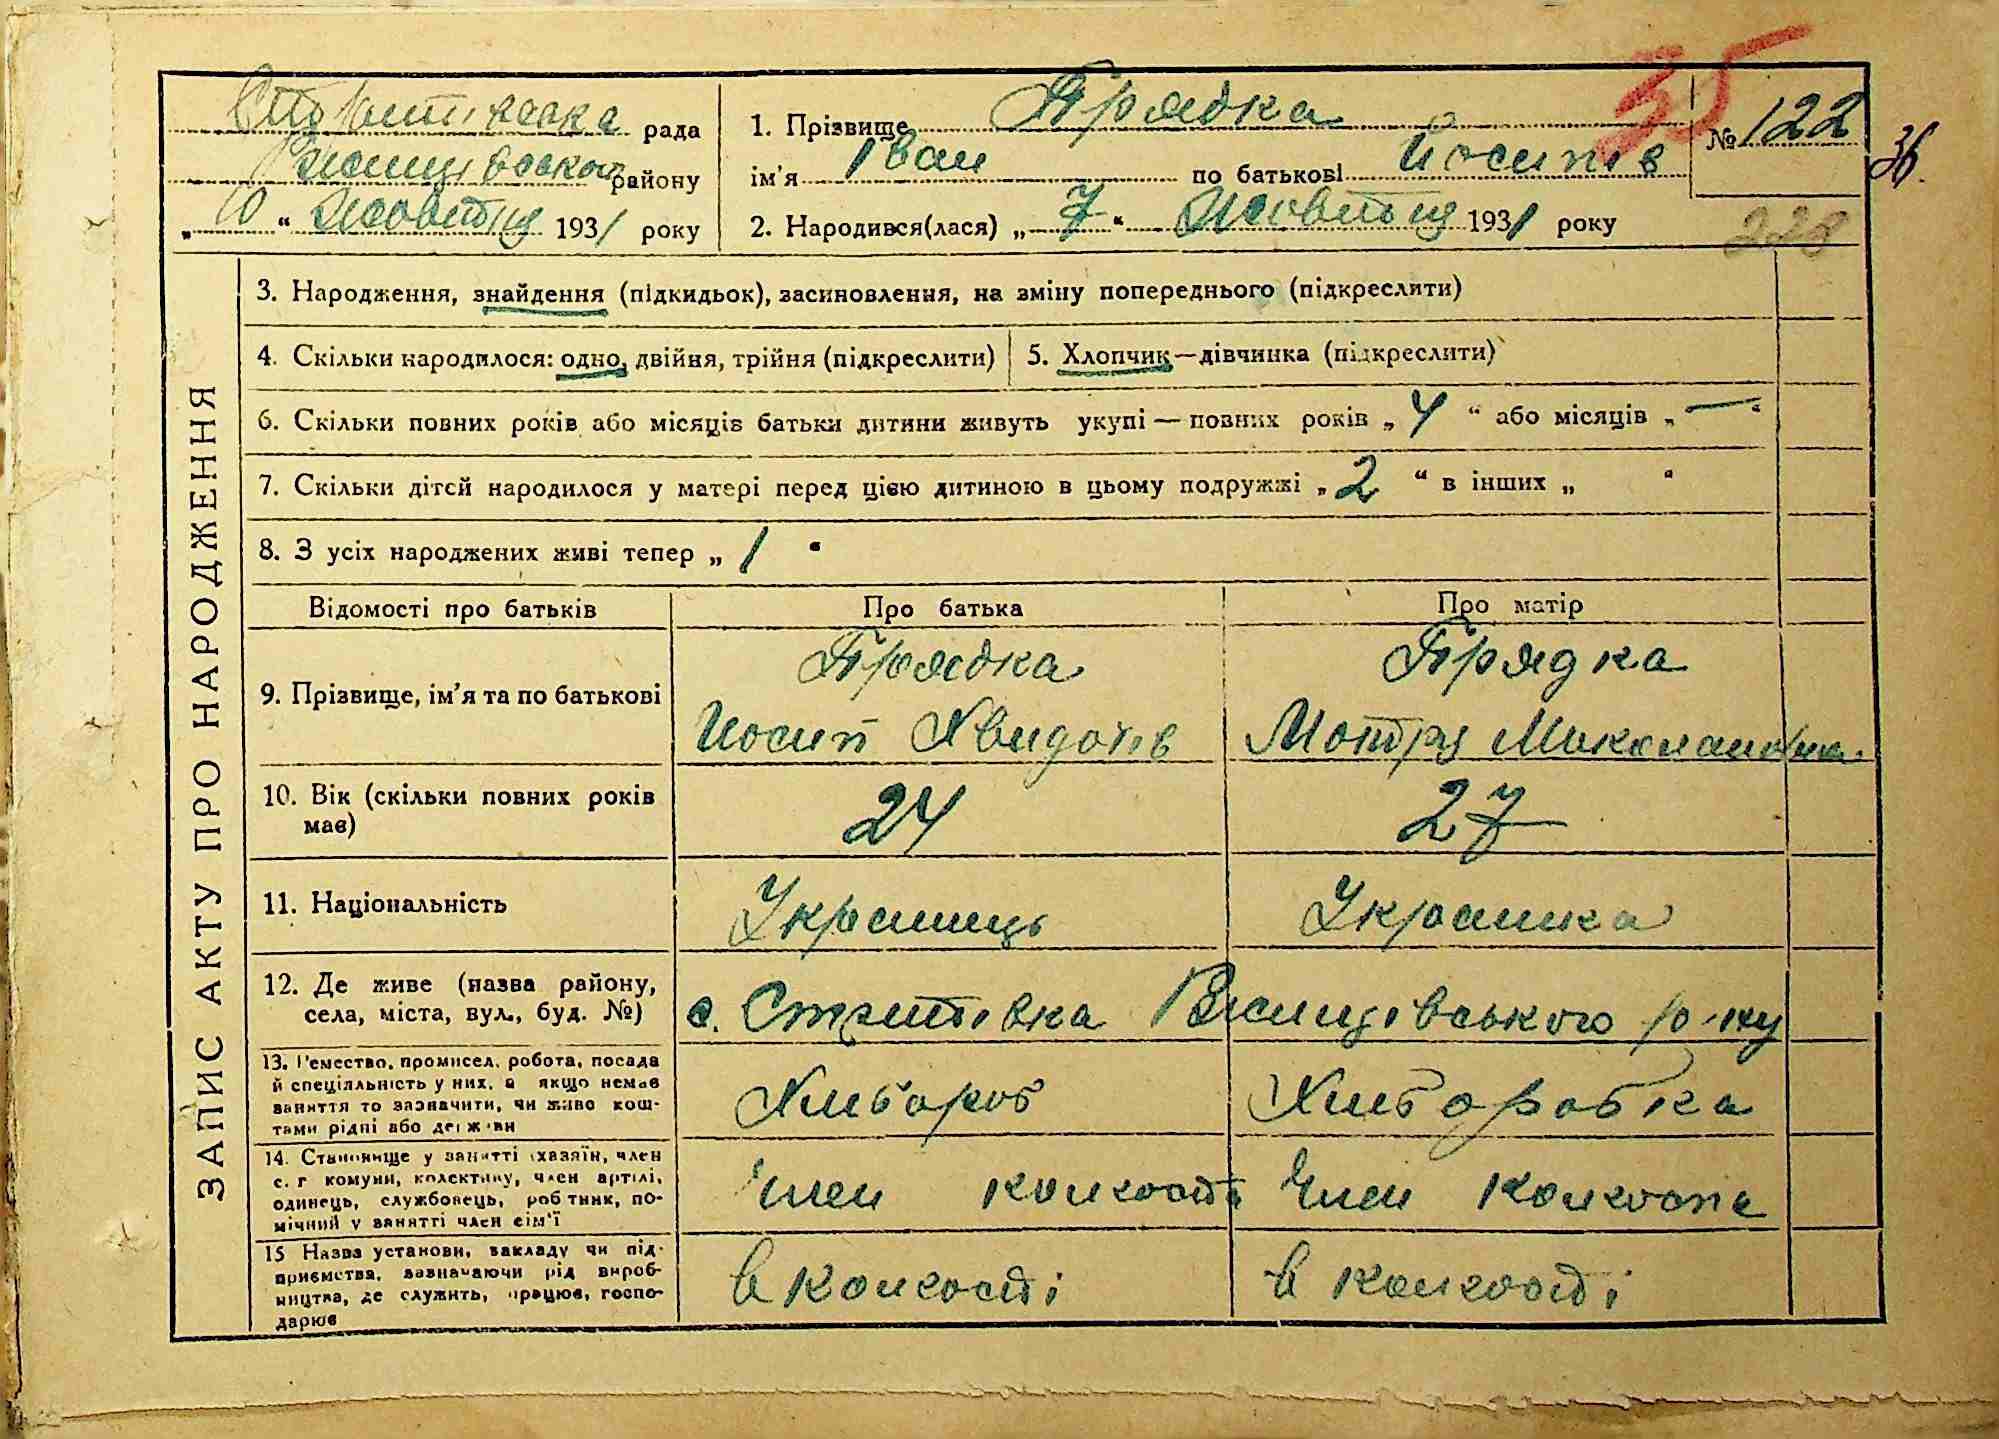 35
Стрітівська рада
1. Прізвище Прядка
№ 122
36.
району
ім'я Іван по батькові Йосипів
„ 10 “ Жовтня 1931 року
2. Народився(лася) „ 7 “ Жовтня 1931 року
228
ЗАПИС АКТУ ПРО НАРОДЖЕННЯ
3. Народження, знайдення (підкидьок), засиновлення, на зміну попереднього (підкреслити)
4. Скільки народилося: одно, двійня, трійня (підкреслити)
5. Хлопчик—дівчинка (підкреслити)
6. Скільки повних років або місяців батьки дитини живуть укупі — повних років „ 4 “ або місяців „ — “
7. Скільки дітей народилося у матері перед цією дитиною в цьому подружжі „ 2 “ в інших „ “
8. З усіх народжених живі тепер „ 1 “
Відомості про батьків
Про батька
Про матір
9. Прізвище, ім'я та по батькові
Прядка
Йосип Хвидотів
Прядка
Мотря Миколаївна
10. Вік (скільки повних років
має)
24
27
11. Національність
Украинець
Украинка
12. Де живе (назва району,
села, міста, вул., буд. №)
с. Стритівка р-ну
13. Ремество, промисел, робота, посада
й спеціяльність у них, а якщо немає
заняття то зазначити, чи живе кош-
тами рідні або держави
Хлібороб
Хлиборобка
14. Становище у занятті (хазяїн, член
с. г комуни, колективу, член артілі,
одинець, службовець, робітник, по-
мічний у занятті член сім'ї
Член колгоспа
Член колгоспа
15 Назва установи, закладу чи під-
приємства, зазначаючи рід вироб-
ництва, де служить, працює, госпо-
дарює
в колгоспі
в колгоспі